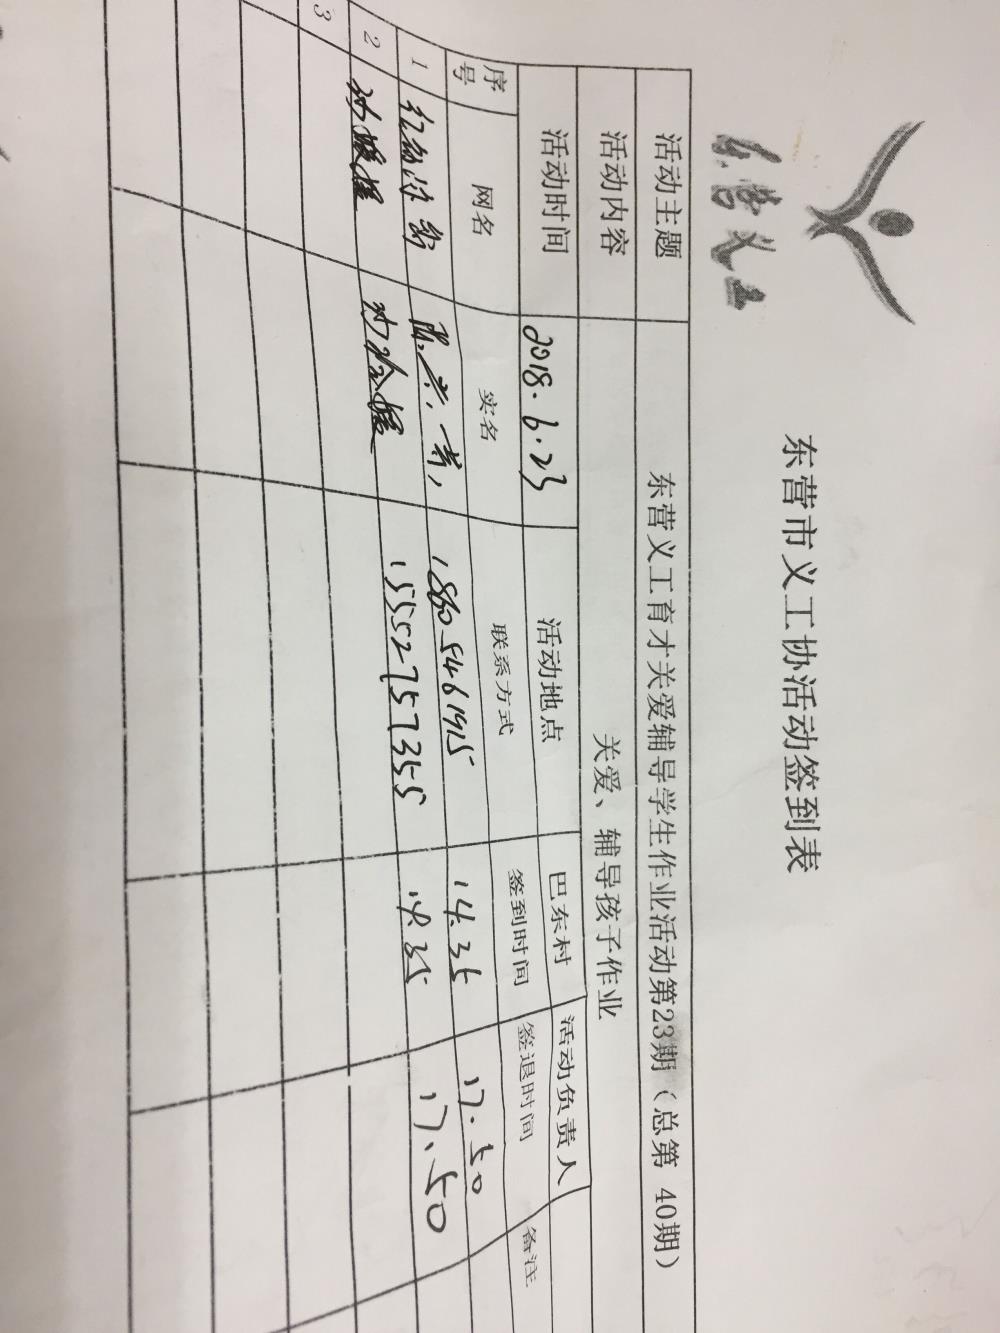 东营义工
东营市义工协活动签到表
活动主题 东营义工育才关爱辅导学生作业活动第23期（总第 40期）
活动内容 关爱、辅导孩子作业
活动时间 2018.6.23 活动地点 巴东村 活动负责人
序号 网名 实名 联系方式 签到时间 签退时间 备注
1 18605461915 14.35 17.50
2 15552757355 14.35 17.50
3